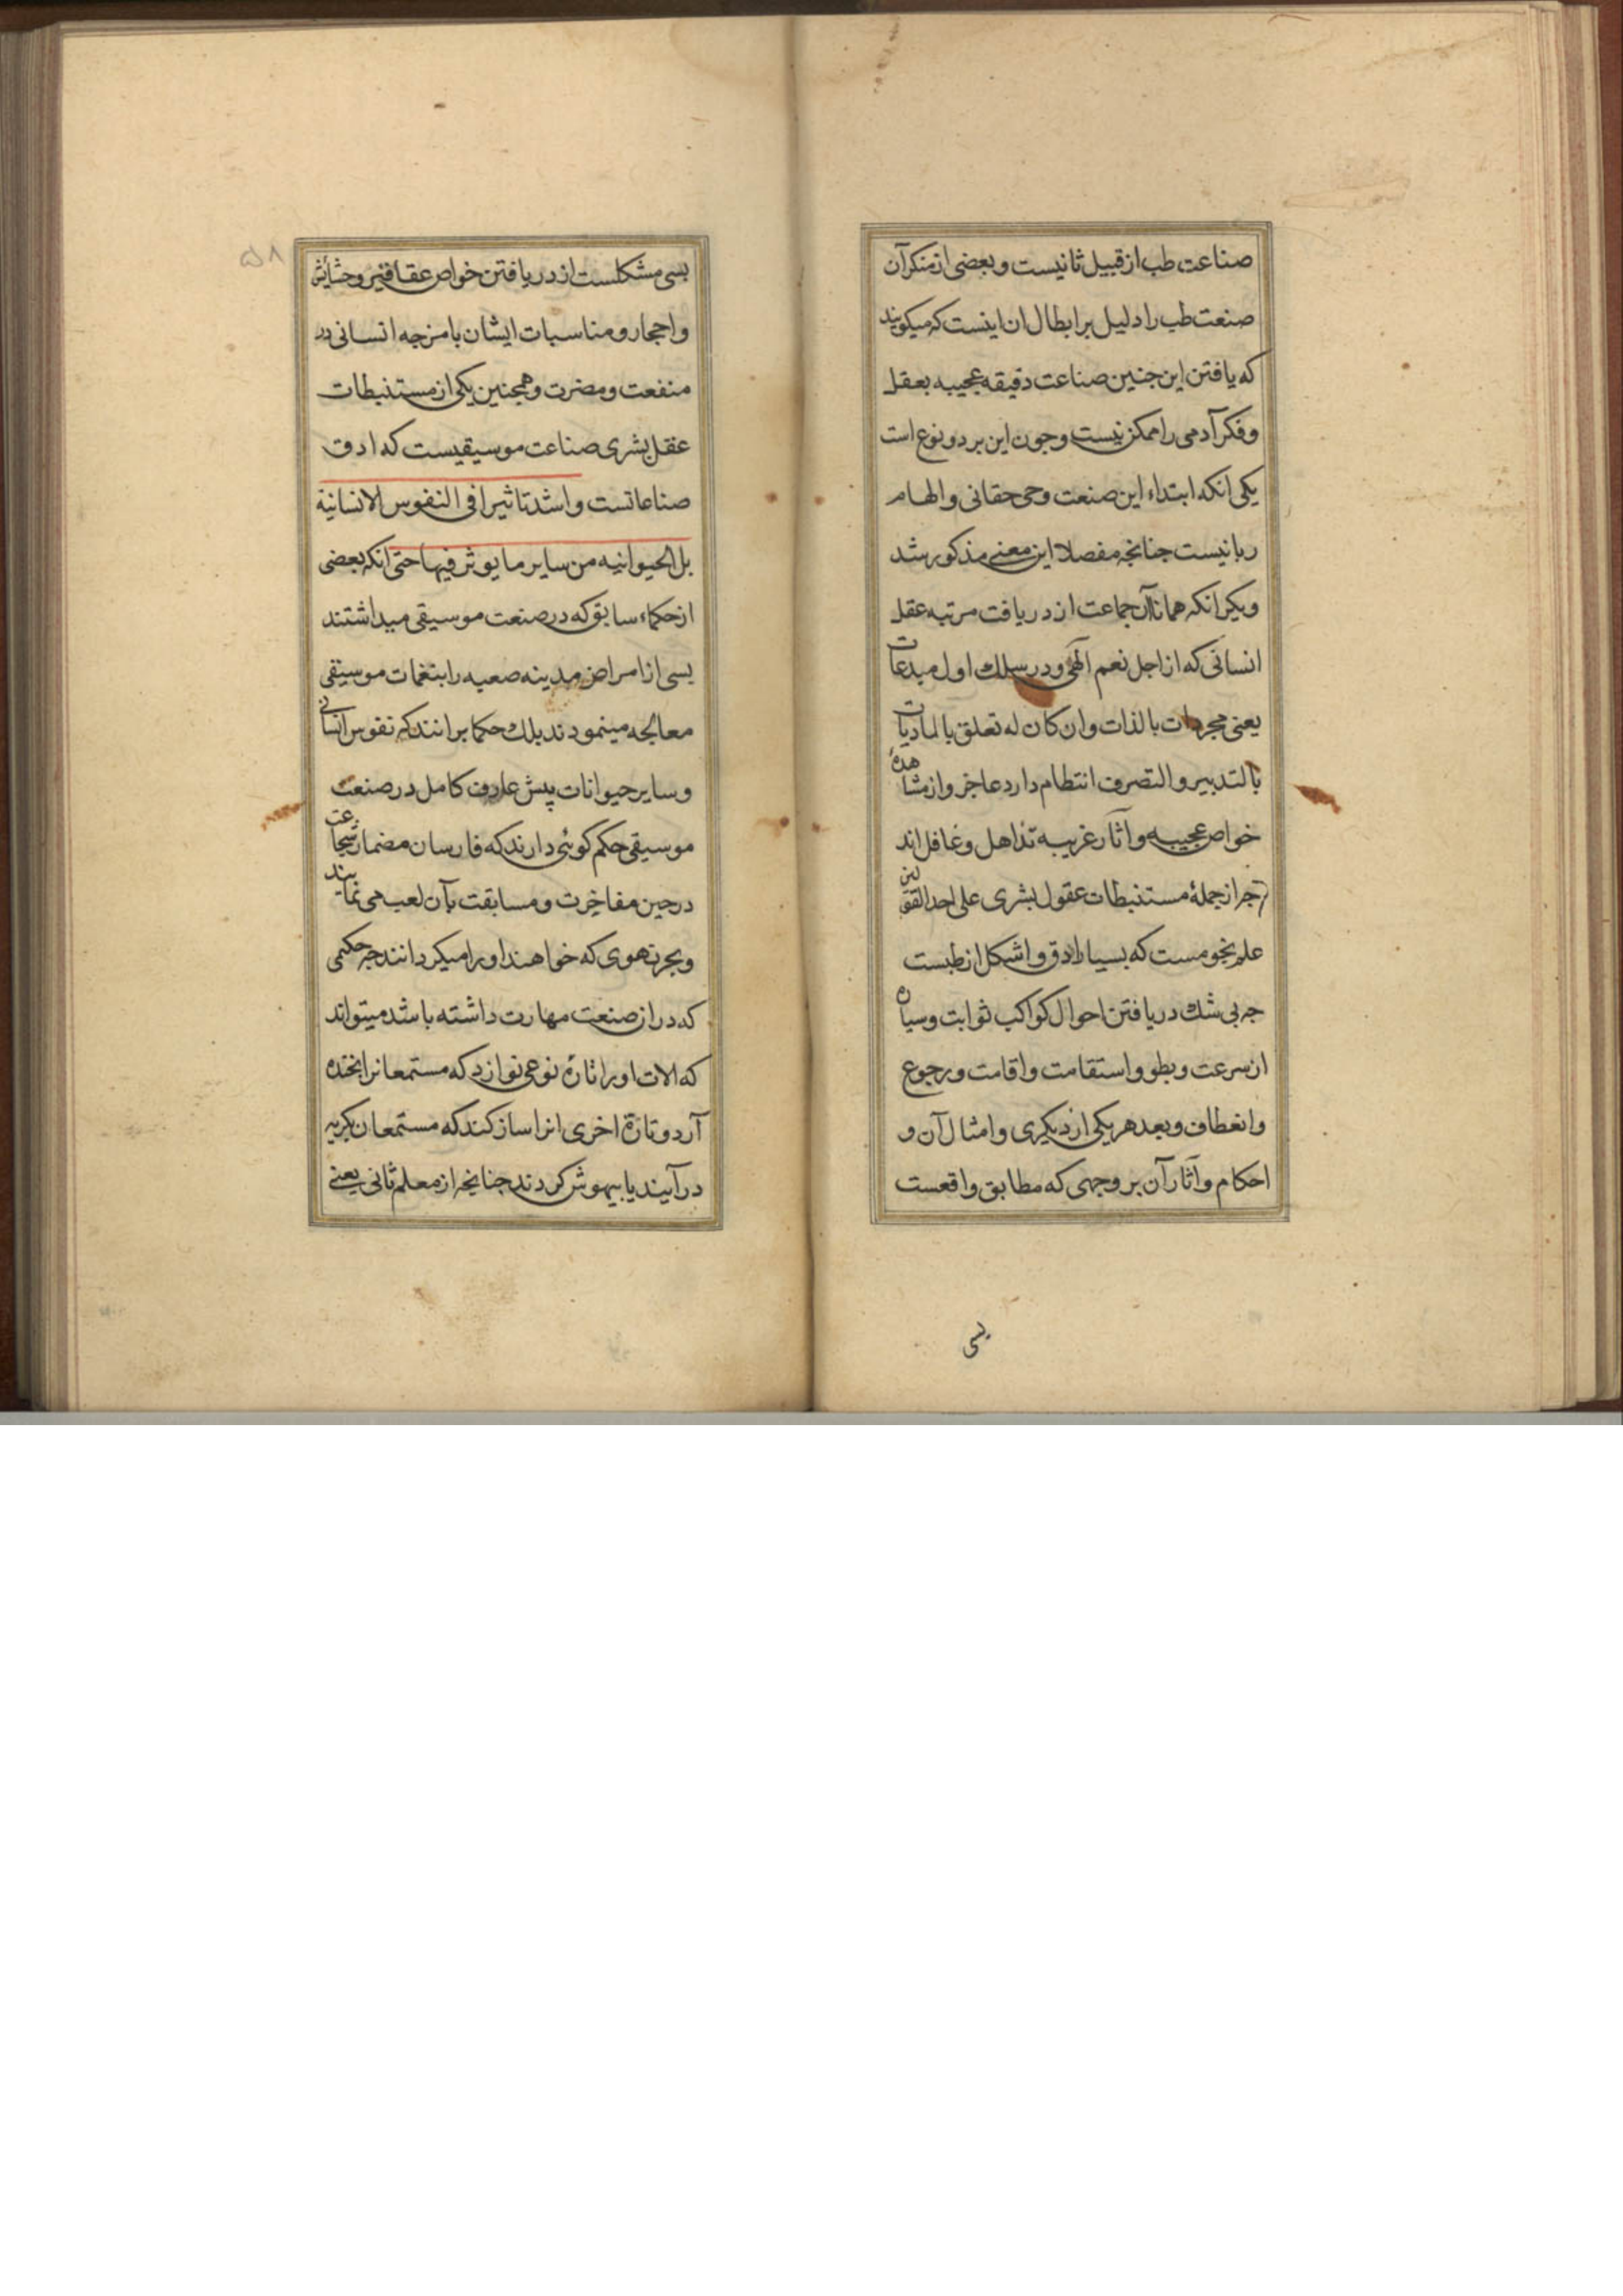 صناعت طب از قبیل ثانیست و بعضی از منکرآن
صنعت طب را دلیل بر ابطال ان اینست که میکویند
که یافتن این جنین صناعت دقیقه عجیبه بعقل
و فکر آدمی را ممکن نیست و جون این بر دو نوع است
یکی انکه ابتداء این صنعت وحی حقانی و الهام
ربانیست جنانجه مفصلا این معنی مذکور شد
ویکر انکه همانا آن جماعت از دریافت مرتبه عقل
انسانی که از اجل نعم الهی و در سلك اول مبدعات
یعنی مجردات بالذات وان کان له تعلق بالمادیات
بالتدبیر والتصرف انتظام دارد عاجز و از مشاهدهٔ
خواص عجیبه و آثار غریبه تذاهل و غافل اند
جر از جملهٔ مستنبطات عقول بشری علی احد القولین
علم نجومست که بسیار ادق و اشکل از طبست
جه بی شك دریافتن احوال کواکب ثوابت و سیاره
از سرعت و بطو و استقامت و اقامت و رجوع
و انعطاف و بعد هر یکی از دیکری و امثال آن و
احکام و آثار آن بر وجهی که مطابق واقعست
بسی
۵۸
بسی مشکلست از دریافتن خواص عقاقیر و حشایش
و احجار و مناسبات ایشان بامزجه انسانی در
منفعت و مضرت و همجنین یکی از مستنبطات
عقل بشری صناعت موسیقیست که ادق
صناعاتست و اشد تاثیرا فی النفوس الانسانیة
بل الحیوانیه من سایر ما یوثر فیها حتی انکه بعضی
از حکماء سابق که در صنعت موسیقی میداشتند
بسی از امراض مدینه صعبه را بنغمات موسیقی
معالجه مینمودند بلك حکما برانند که نفوس انسانی
و سایر حیوانات پیش عارف کامل در صنعت
موسیقی حکم کوئی دارند که فارسان مضمار شجاعت
در حین مفاخرت و مسابقت بآن لعب می نمایند
و بجرتهوی که خواهند او را میکردانند جه حکیمی
که در ان صنعت مهارت داشته باشد میتواند
که الات او را تارة نوعی نوازد که مستمعانرا بخنده
آرد و تارة اخری انرا ساز کند که مستمعان بکریه
درآیند یا بیهوش کردند جنانجه از معلم ثانی یعنی